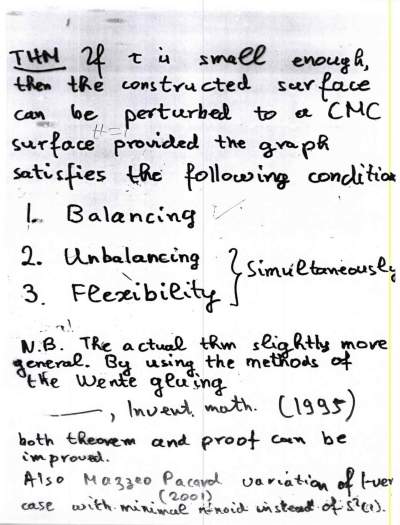 THM If τ is small enough,
then the constructed surface
can be perturbed to a CMC
H=1
surface provided the graph
satisfies the following condition
1. Balancing
2. Unbalancing
3. Flexibility } Simultaneously
N.B. The actual thm slightly more
general. By using the methods of
the Wente gluing
——, Invent. math. (1995)
both theorem and proof can be
improved.
Also Mazzeo Pacard variation of 1-ver
(2001)
case with minimal n-noid instead of S²(1).